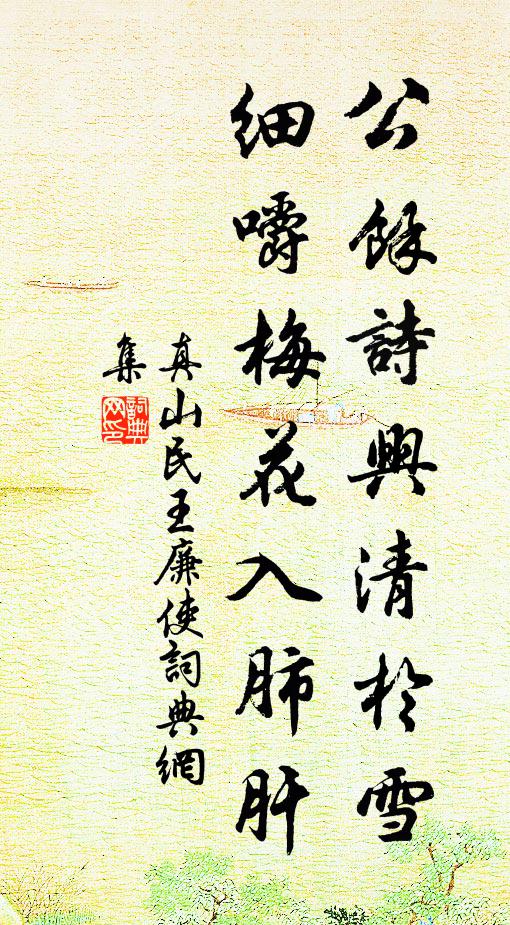 公餘詩興清於雪
細嚼梅花入肺肝
真山民王廉使詞典網
集
詞典
网印